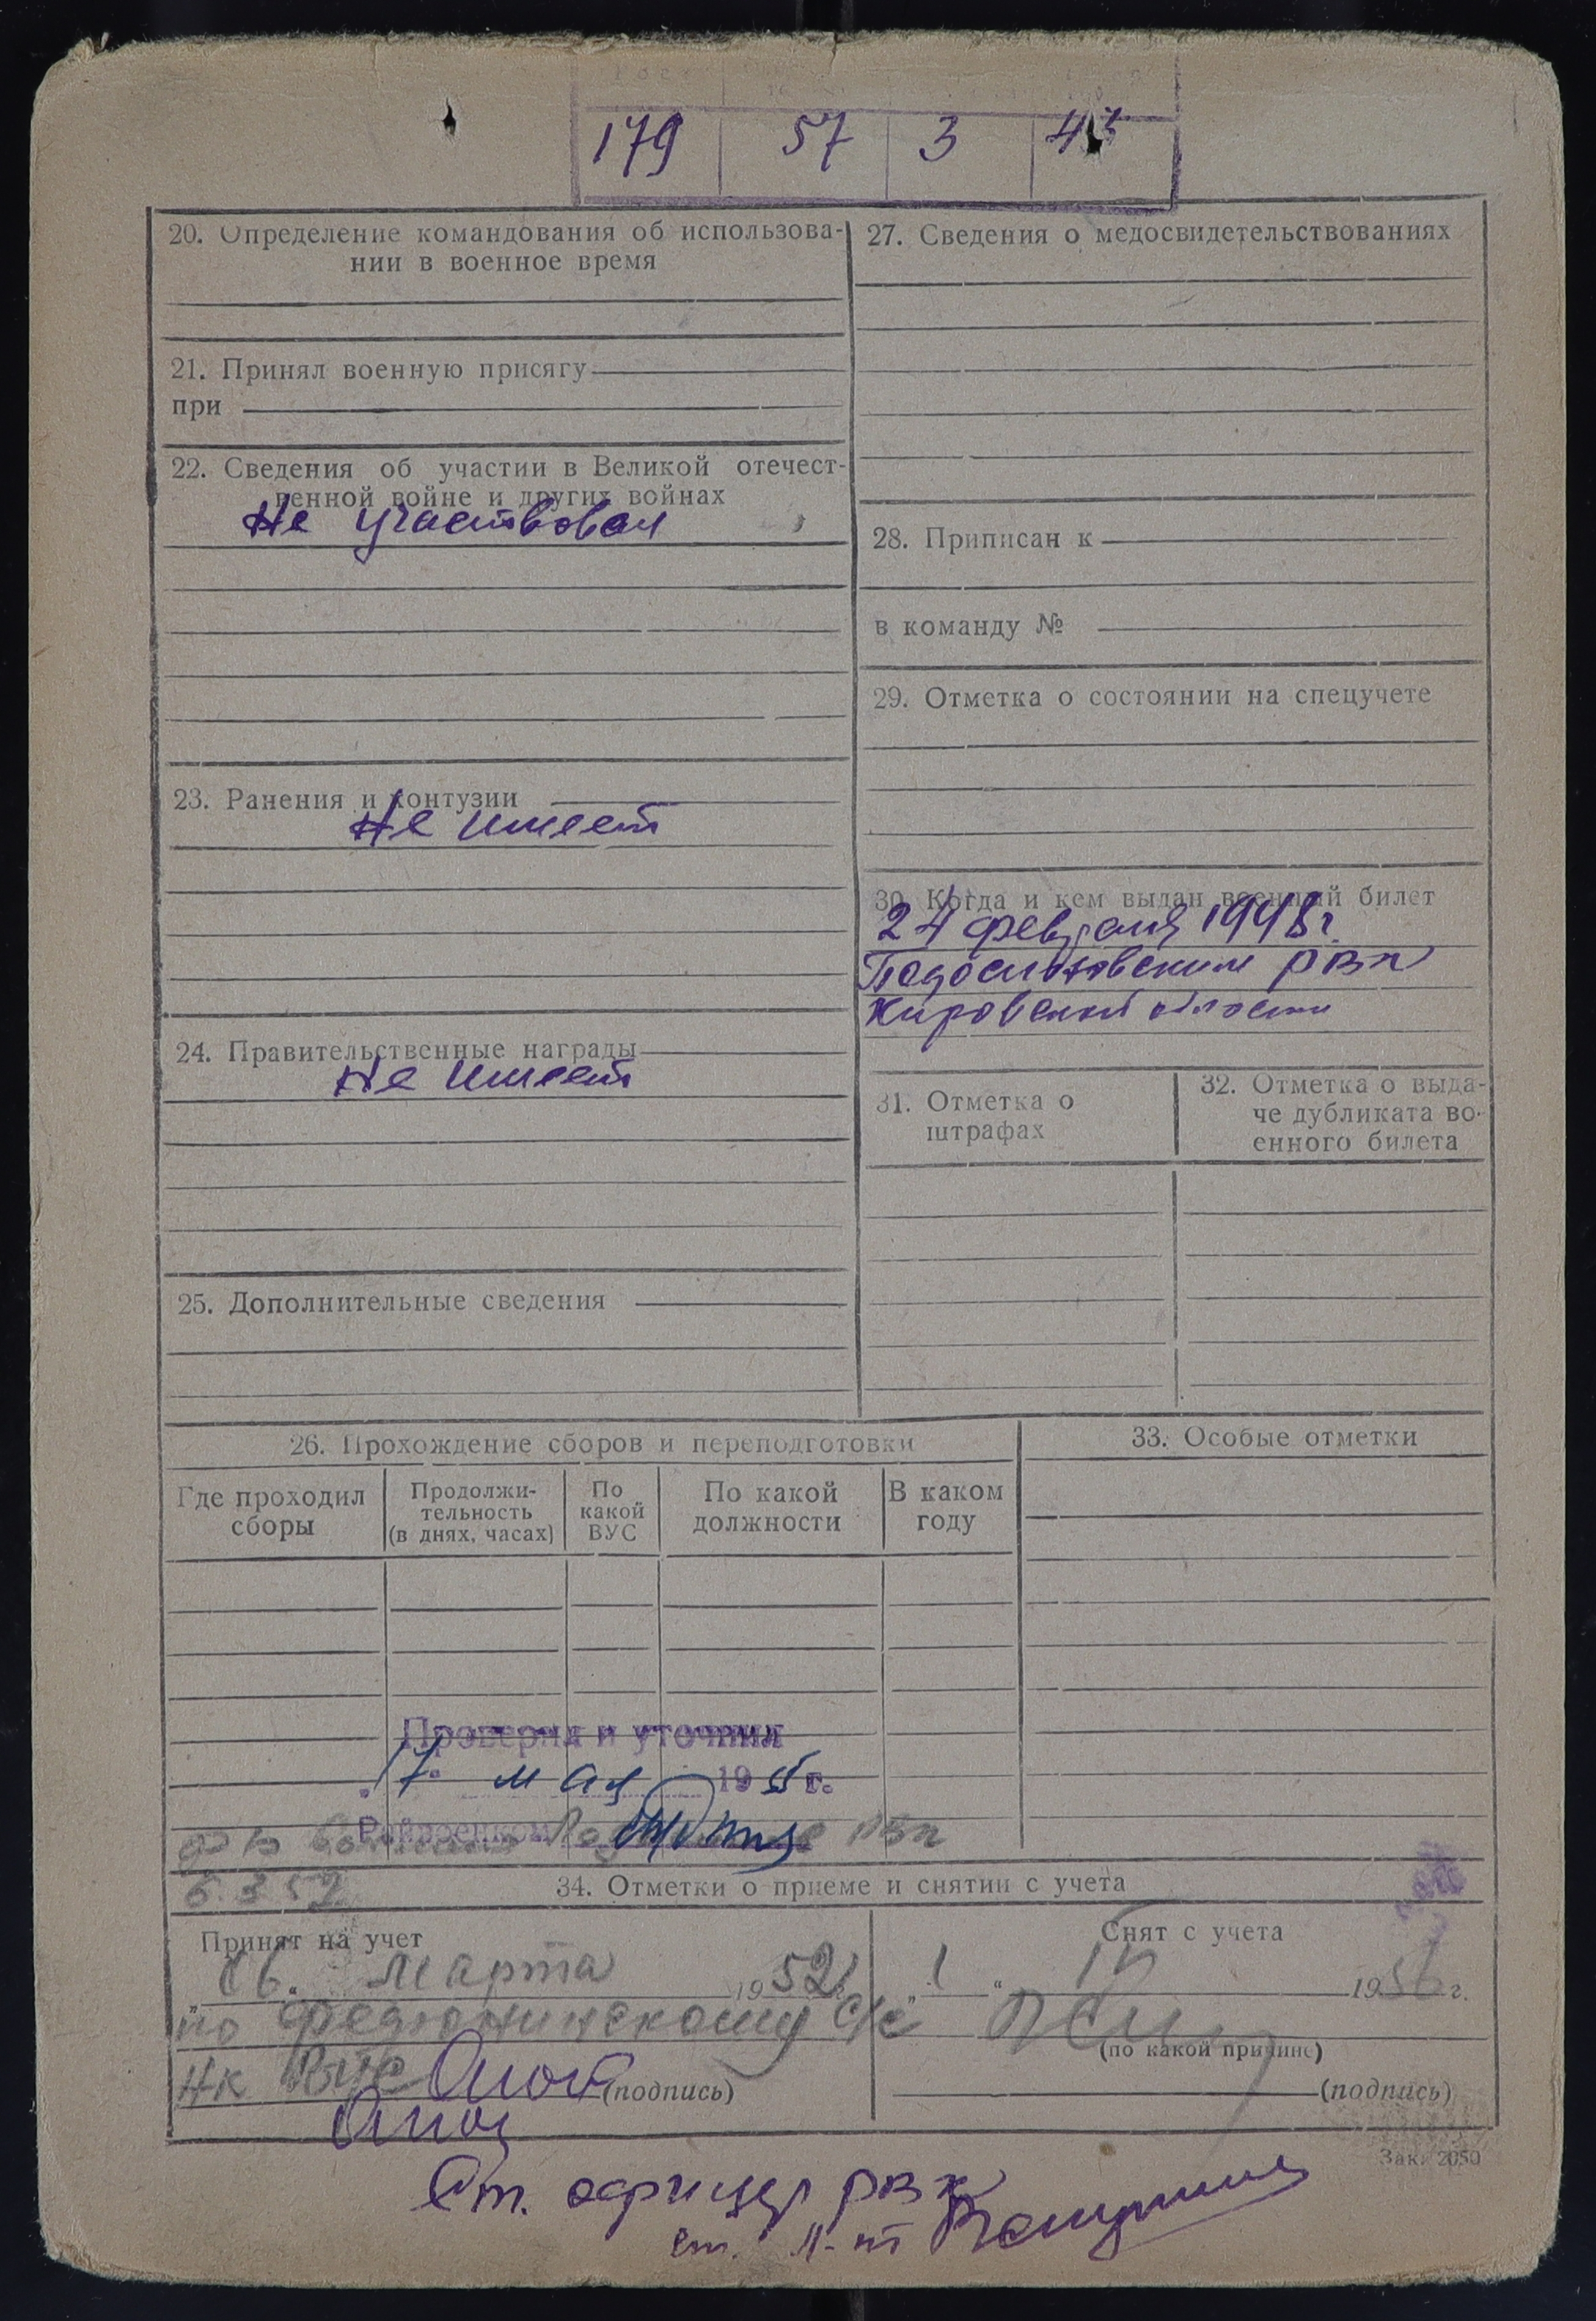 179 57 3
20. Определение командования об использова-
нии в военное время
21. Принял военную присягу
при
22. Сведения об участии в Великой отечест-
венной войне и других войнах
Не участвовал
23. Ранения и контузии
Не имеет
24. Правительственные награды
Не имеет
25. Дополнительные сведения
27. Сведения о медосвидетельствованиях
28. Приписан к
в команду №
29. Отметка о состоянии на спецучете
30. Когда и кем выдан военный билет
24 февраля 1948 г.
Подосиновским РВК
Кировской области
31. Отметка о
штрафах
32. Отметка о выда-
че дубликата во-
енного билета
26. Прохождение сборов и переподготовки
Где проходил
сборы
Продолжи-
тельность
(в днях, часах)
По
какой
ВУС
По какой
должности
В каком
году
33. Особые отметки
Проверил и уточнил
17 мая 1955 г.
Райвоенком
РВК
6.3.52
34. Отметки о приеме и снятии с учета
Принят на учет
"16" марта 1952 г.
по Федюнинскому с/с
(подпись)
Снят с учета
"1" 1956 г.
(по какой причине)
(подпись)
Зак. 2050
Ст. офицер РВК
ст. л-нт